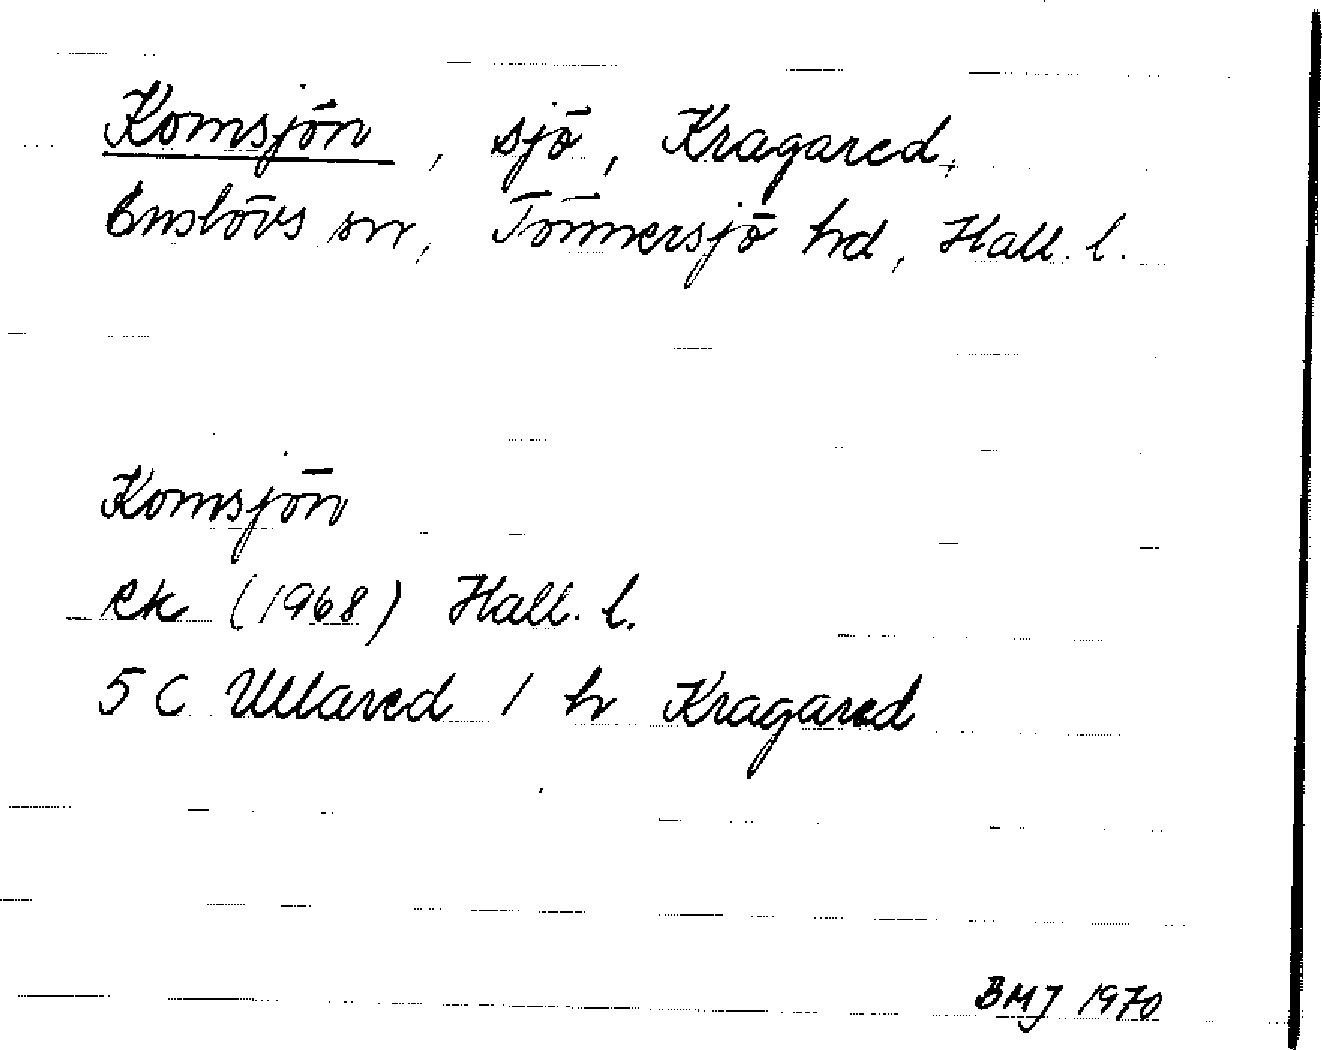 Komsjön, sjö, Kragared,
Enslövs sn, Tönnersjö hd, Hall. l.
Komsjön
Rk (1968) Hall. l.
5 C Ullared / hr Kragared
BMJ 1970